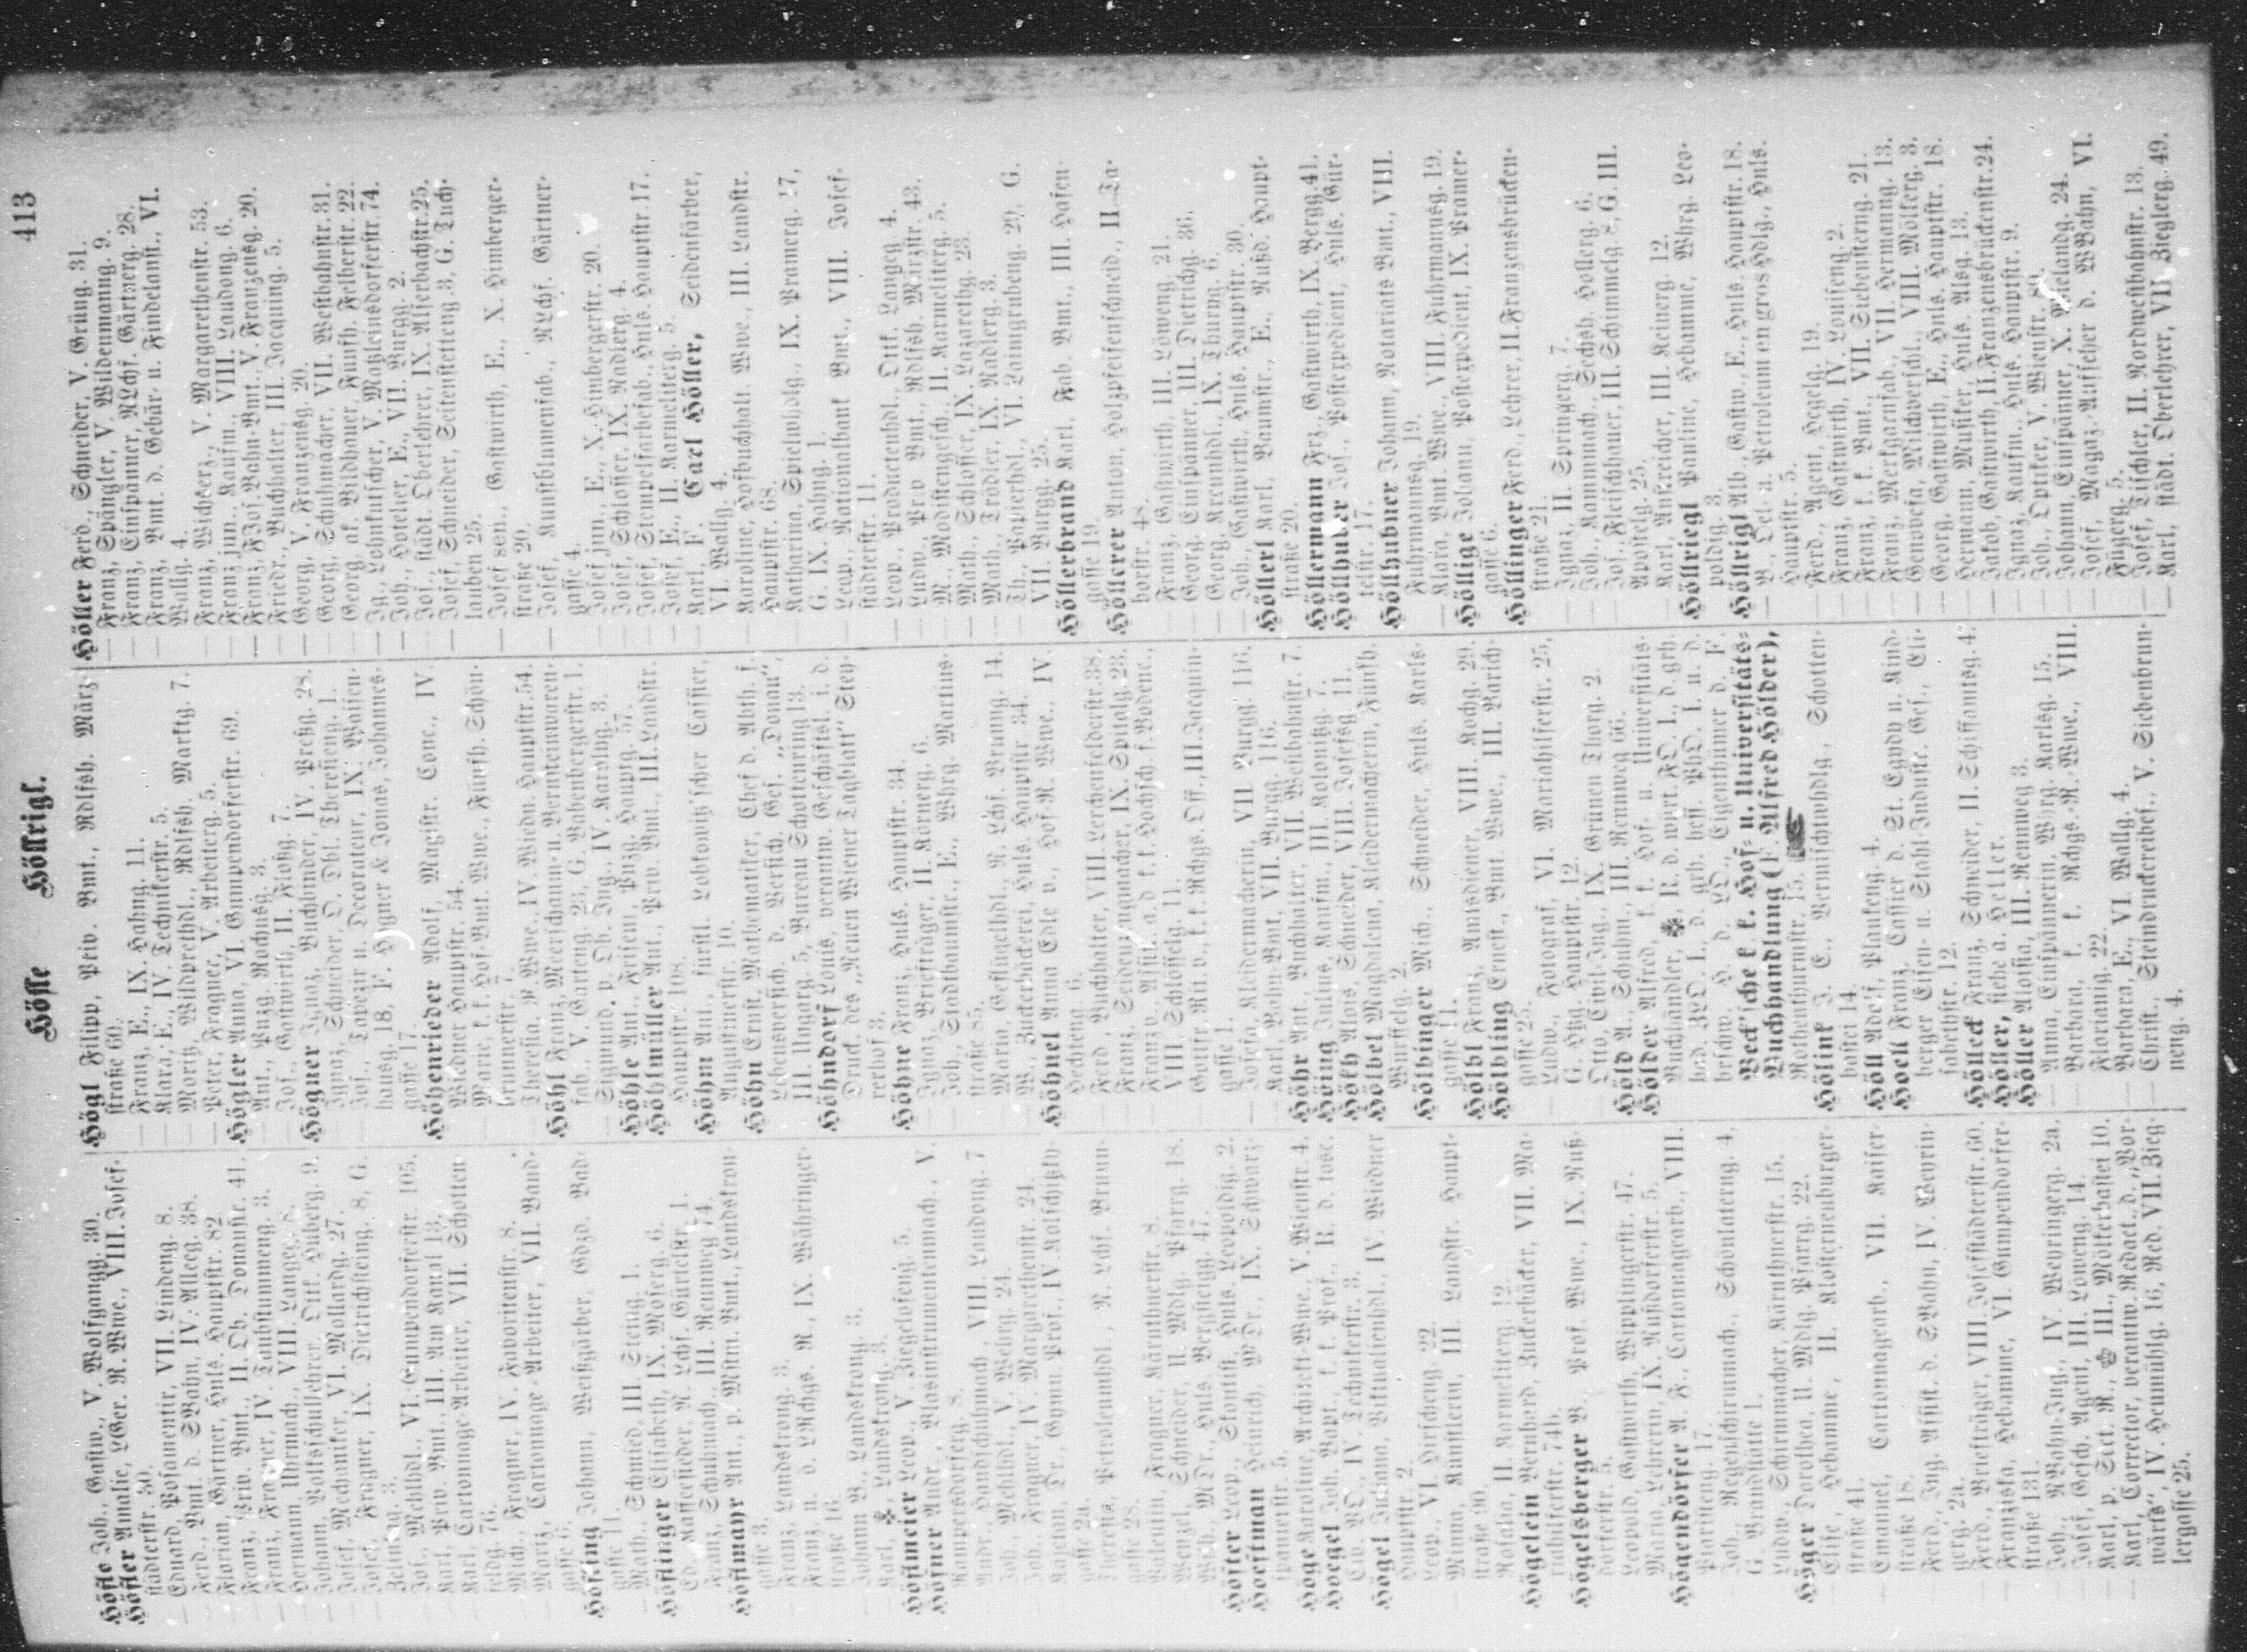 Höfle Höllrigl. 413
Höfle Joh., Gastw., V. Wolfgangg. 30.
Höfler Amalie, LGer. R. Wwe., VIII. Josef-
städterstr. 30.
— Eduard, Posamentir, VII. Lindeng. 8.
— Ferd., Bmt. d. SBahn, IV. Alleeg. 38.
— Florian, Gärtner, Hnls. Hauptstr. 82.
— Franz, Priv. Bmt., II. Ob. Donaustr. 41.
— Franz, Fragner, IV. Taubstummeng. 3.
— Hermann, Uhrmach., VIII. Langeg. 8.
— Johann, Volksschullehrer, Ott. Huberg. 9.
— Josef, Mechaniker, VI. Mollardg. 27.
— Josef, Fragner, IX. Dietrichsteing. 8, G.
— Jos., Mehlhdl., VI. Gumpendorferstr. 105.
— Karl, Priv. Bmt., III. Am Kanal 13.
— Karl, Cartonnage-Arbeiter, VII. Schotten-
feldg. 76.
— Mich., Fragner, IV. Favoritenstr. 8.
— Moritz, Cartonnage-Arbeiter, VII. Band-
gasse 6.
Höfling Johann, Weißgärber, Gdzd. Bad-
gasse 11.
— Math., Schmied, III. Steng. 1.
Höflinger Elisabeth, IX. Moserg. 6.
— Ed., Kaffeesieder, N. Lchf. Gürtelstr. 1.
— Franz, Schuhmach., III. Rennweg 74.
Höflmayr Ant., p. Mstm. Bmt., Landskron-
gasse 3.
— Franz, Landskrong. 3.
— Franz, n. ö. LRchgs. R., IX. Währinger-
straße 16.
— Johann B., Landskrong. 3.
— Karl, Landskrong. 3.
Höflmeier Leop., V. Ziegelofeng. 5.
Höfner Andr., Blasinstrumentenmach., V.
Rampersdorferg. 8.
— Andr., Handschuhmach., VIII. Laudong. 7.
— Joh., Mehlhdl., V. Wehrg. 24.
— Joh., Fragner, IV. Margarethenstr. 24.
— Theresia, Petroleumhdl., N. Lchf. Brunn-
gasse 28.
— Wenzel, Schneider, U. Mdlg. Pfarrg. 18.
— Wilh., MDr., Hnls. Bergsteigg. 47.
Höfter Leop., Skontist, Hnls. Leopoldig. 2.
Hoeftman Heinrich, MDr., IX. Schwarz-
spanierstr. 5.
Höge Karoline, Architekt-Wwe., V. Wienstr. 4.
Hoegel Joh. Bapt., k. k. Prof., R. d. tosc.
Civ. VO., IV. Technikerstr. 3.
Högel Juliana, Viktualienhdl., IV. Wiedner
Hauptstr. 2.
— Leop., VI. Hirscheng. 22.
— Nanna, Künstlerin, III. Landstr. Haupt-
straße 90.
— Rosalia, II. Karmeliterg. 12.
Högelein Bernhard, Zuckerbäcker, VII. Ma-
riahilferstr. 74b.
Högelsberger B., Prof. Wwe., IX. Nuß-
dorferstr. 5.
— Leopold, Gastwirth, Wipplingerstr. 47.
— Maria, Lehrerin, IX. Nußdorferstr. 5.
Högendörfer A. F., Cartonnagearb., VIII.
Piaristeng. 17.
— Joh., Regenschirmmach., Schönlaterng. 4,
G. Brandstätte 1.
— Ludw., Schirmmacher, Kärnthnerstr. 15.
Höger Dorothea, U. Mdlg. Pfarrg. 22.
— Elise, Hebamme, II. Klosterneuburger-
straße 41.
— Emanuel, Cartonnagearb., VII. Kaiser-
straße 18.
— Ferd., Ing. Assist. d. SBahn, IV. Wehrin-
gerg. 2a.
— Ferd., Briefträger, VIII. Josefstädterstr. 60.
— Franziska, Hebamme, VI. Gumpendorfer-
straße 131.
— Joh., NBahn-Ing., IV. Wehringerg. 2a.
— Josef, Gesch. Agent, III. Löweng. 14.
— Karl, p. Sect. R., III., Mölkerbastei 10.
— Karl, Corrector, verantw. Redact. d. „Vor-
wärts“, IV. Heumühlg. 16, Red. VII. Zieg-
lergasse 25.
Högl Filipp, Priv. Bmt., Rdlfsh. März-
straße 60.
— Franz, E., IX. Hahng. 11.
— Klara, E., IV. Technikerstr. 5.
— Moritz, Wildprethdl., Rdlfsh. Marktg. 7.
— Peter, Fragner, V. Arbeiterg. 5.
Högler Anna, VI. Gumpendorferstr. 69.
— Ant., Pnzg. Rochusg. 3.
— Jos., Gastwirth, II. Floßg. 7.
Högner Ignaz, Buchbinder, IV. Preßg. 28.
— Ignaz, Schneider, O. Dbl. Theresieng. 1.
— Jos., Tapezir u. Decorateur, IX. Waisen-
hausg. 18, F. Högner & Jonas, Johannes-
gasse 17.
Höhenrieder Adolf, Magistr. Conc., IV.
Wiedner Hauptstr. 54.
— Marie, k. k. Hof-Bmt. Wwe., Fünfh. Schön-
brunnerstr. 7.
— Theresia, R. Wwe., IV. Wiedn. Hauptstr. 54.
Höhl Franz, Meerschaum- u. Bernsteinwaren-
fab., V. Garteng. 23, G. Babenbergerstr. 1.
— Sigmund, p. Ob. Ing., IV. Karolag. 3.
Höhle Ant., Friseur, Pnzg. Hauptg. 57.
Höhlmüller Ant., Priv. Bmt., III. Landstr.
Hauptstr. 108.
Höhm Ant., fürstl. Lobkowitz'scher Cassier,
Augustinerstr. 10.
Höhn Ernst, Mathematiker, Chef d. Abth. f.
Lebensversich. d. Versich. Ges. „Donau“,
III. Ungarg. 5, Bureau Schottenring 13.
Höhndorf Louis, verantw. Geschäftsl. i. d.
Druck. des „Neuen Wiener Tagblatt“ Stey-
rerhof 3.
Höhne Franz, Hnls. Hauptstr. 34.
— Ignaz, Briefträger, II. Körnerg. 6.
— Joh., Stadtbaumstr., E., Whrg. Martins-
straße 85.
— Maria, Geflügelhdl., N. Lchf. Brunng. 14.
— W., Zuckerbäckerei, Hnls. Hauptstr. 34.
Höhnel Anna Edle v., Hof-R. Wwe., IV.
Hechteng. 6.
— Ferd., Buchhalter, VIII. Lerchenfelderstr. 38.
— Franz, Seidenzeugmacher, IX. Spitalg. 23.
— Franz v., Assist. a. d. k. k. Hochsch. f. Bodenc.,
VIII. Schlösselg. 11.
— Gottfr. Rit. v., k. k. Rchgs. Off., III. Jacquin-
gasse 1.
— Josefa, Kleidermacherin, VII. Burgg. 116.
— Karl, Bahn-Bmt., VII. Burgg. 116.
Höhr Ant., Buchhalter, VII. Westbahnstr. 7.
Höing Julius, Kaufm., III. Kolonitzg. 7.
Hölb Alois, Schneider, VIII. Josefsg. 11.
Hölbel Magdalena, Kleidermacherin, Fünfh.
Wurffelg. 2.
Hölbinger Mich., Schneider, Hnls. Karls-
gasse 11.
Hölbl Franz, Amtsdiener, VIII. Kochg. 29.
Hölbling Ernest., Bmt. Wwe., III. Barich-
gasse 25.
— Ludw., Fotograf, VI. Mariahilferstr. 25,
G. Htzg. Hauptstr. 12.
— Otto, Civil-Ing., IX. Grünen Thorg. 2.
Höld A., Schuhm., III. Rennweg 66.
Hölder Alfred, k. k. Hof- u. Universitäts-
Buchhändler, R. d. würt. FO. I., d. grh.
bad. ZLO. I., d. grh. hess. PhO. I. u. d.
bersaw. H. d. WO., Eigenthümer d. F.
Beck'sche k. k. Hof- u. Universitäts-
Buchhandlung (F. Alfred Hölder),
Rothenthurmstr. 15.
Hölink J. C., Vermischtwhdlg., Schotten-
bastei 14.
Höll Adolf, Mauteng. 4.
Hoell Franz, Cassier d. St. Egydy u. Kind-
berger Eisen- u. Stahl-Industr. Ges., Eli-
sabethstr. 12.
Hölleck Franz, Schneider, II. Schiffamtsg. 4.
Höller, siehe a. Heller.
Höller Aloisia, III. Rennweg 3.
— Anna, Einspännerin, Whrg. Karlsg. 15.
— Barbara, k. k. Rchgs.-R.-Wwe., VIII.
Florianig. 22.
— Barbara, E., VI. Wallg. 4.
— Christ., Steindruckereibes., V. Siebenbrun-
neng. 4.
Höller Ferd., Schneider, V. Grüng. 31.
— Franz, Spängler, V. Wildemanng. 9.
— Franz, Einspänner, NLchf. Gärtnerg. 28.
— Franz, Bmt. d. Gebär- u. Findelanst., VI.
Wallg. 4.
— Franz, Wichseerz., V. Margarethenstr. 53.
— Franz jun., Kaufm., VIII. Laudong. 6.
— Franz, FJos. Bahn-Bmt., V. Franzensg. 20.
— Friedr., Buchhalter, III. Jacquing. 5.
— Georg, V. Franzensg. 20.
— Georg, Schuhmacher, VII. Westbahnstr. 31.
— Georg, af. Bildhauer, Fünfh. Felberstr. 22.
— Ig., Lohnkutscher, V. Matzleinsdorferstr. 74.
— Joh., Hotelier, E., VII. Burgg. 2.
— Jos., städt. Oberlehrer, IX. Alserbachstr. 25.
— Josef, Schneider, Seitenstetteng. 3, G. Tuch-
lauben 25.
— Josef sen., Gastwirth, E., X. Himberger-
straße 20.
— Josef, Kunstblumenfab., NLchf. Gärtner-
gasse 4.
— Josef jun., E., X. Himbergerstr. 20.
— Josef, Schlosser, IX. Nadlerg. 4.
— Josef, Stempelfarbefab., Hnls. Hauptstr. 17.
— Josef, E., II. Karmeliterg. 5.
— Karl, F. Carl Höller, Seidenfärber,
VI. Wallg. 4.
— Karoline, Hofbuchhalt. Wwe., III. Landstr.
Hauptstr. 68.
— Katharina, Spielwhdlg., IX. Pramerg. 17,
G. IX. Hahng. 1.
— Leop., Nationalbank Bmt., VIII. Josef-
städterstr. 11.
— Leop., Productenhdl., Ott. Langeg. 4.
— Ludw., Priv. Bmt., Rdlfsh. Märzstr. 43.
— M., Modistengesch., II. Karmeliterg. 5.
— Math., Schlosser, IX. Lazarethg. 23.
— Math., Trödler, IX. Nadlerg. 3.
— Th., Papierhdl., VI. Laimgrubeng. 29, G.
VII. Burgg. 25.
Höllerbrand Karl, Fab. Bmt., III. Hafen-
gasse 19.
Höllerer Anton, Holzpfeifenschneid., II. Ta-
borstr. 48.
— Franz, Gastwirth, III. Löweng. 21.
— Georg, Einspänner, III. Dietrichg. 36.
— Georg, Krennhdl., IX. Thurng. 6.
— Joh., Gastwirth, Hnls. Hauptstr. 30.
Höllerl Karl, Baumstr., E., Nußd. Haupt-
straße 20.
Höllermann Frz., Gastwirth, IX. Bergg. 41.
Höllhuber Jos., Postexpedient, Hnls. Gür-
telstr. 17.
Höllhubner Johann, Notariats Bmt., VIII.
Fuhrmannsg. 19.
— Klara, Bmt. Wwe., VIII. Fuhrmannsg. 19.
Höllige Johann, Postexpedient, IX. Pramer-
gasse 6.
Höllinger Ferd., Lehrer, II. Franzensbrücken-
straße 21.
— Ignaz, II. Springerg. 7.
— Joh., Kammmach., Sechsh. Hollerg. 6.
— Jos., Fleischhauer, III. Schimmelg. 8, G. III.
Apostelg. 25.
— Karl, Anstreicher, III. Keinerg. 12.
Höllriegl Pauline, Hebamme, Whrg. Leo-
poldig. 3.
Höllrigl Alb., Gastw., E., Hnls. Hauptstr. 18.
— B., Oel- u. Petroleum en gros Hdlg., Hnls.
Hauptstr. 5.
— Ferd., Agent, Hegelg. 19.
— Franz, Gastwirth, IV. Louiseng. 2.
— Franz, k. k. Bmt., VII. Siebensterng. 21.
— Franz, Merkgarnfab., VII. Hermanng. 13.
— Genovefa, Milchverschl., VIII. Mölkerg. 3.
— Georg, Gastwirth, E., Hnls. Hauptstr. 18.
— Hermann, Musiker, Hnls. Alsg. 13.
— Jakob, Gastwirth, II. Franzensbrückenstr. 24.
— Ignaz, Kaufm., Hnls. Hauptstr. 9.
— Joh., Optiker, V. Wienstr.
— Johann, Einspänner, X. Wielandg. 24.
— Josef, Magaz. Aufseher d. WBahn, VI.
Fügerg. 5.
— Josef, Tischler, II. Nordwestbahnstr. 13.
— Karl, städt. Oberlehrer, VII. Zieglerg. 49.